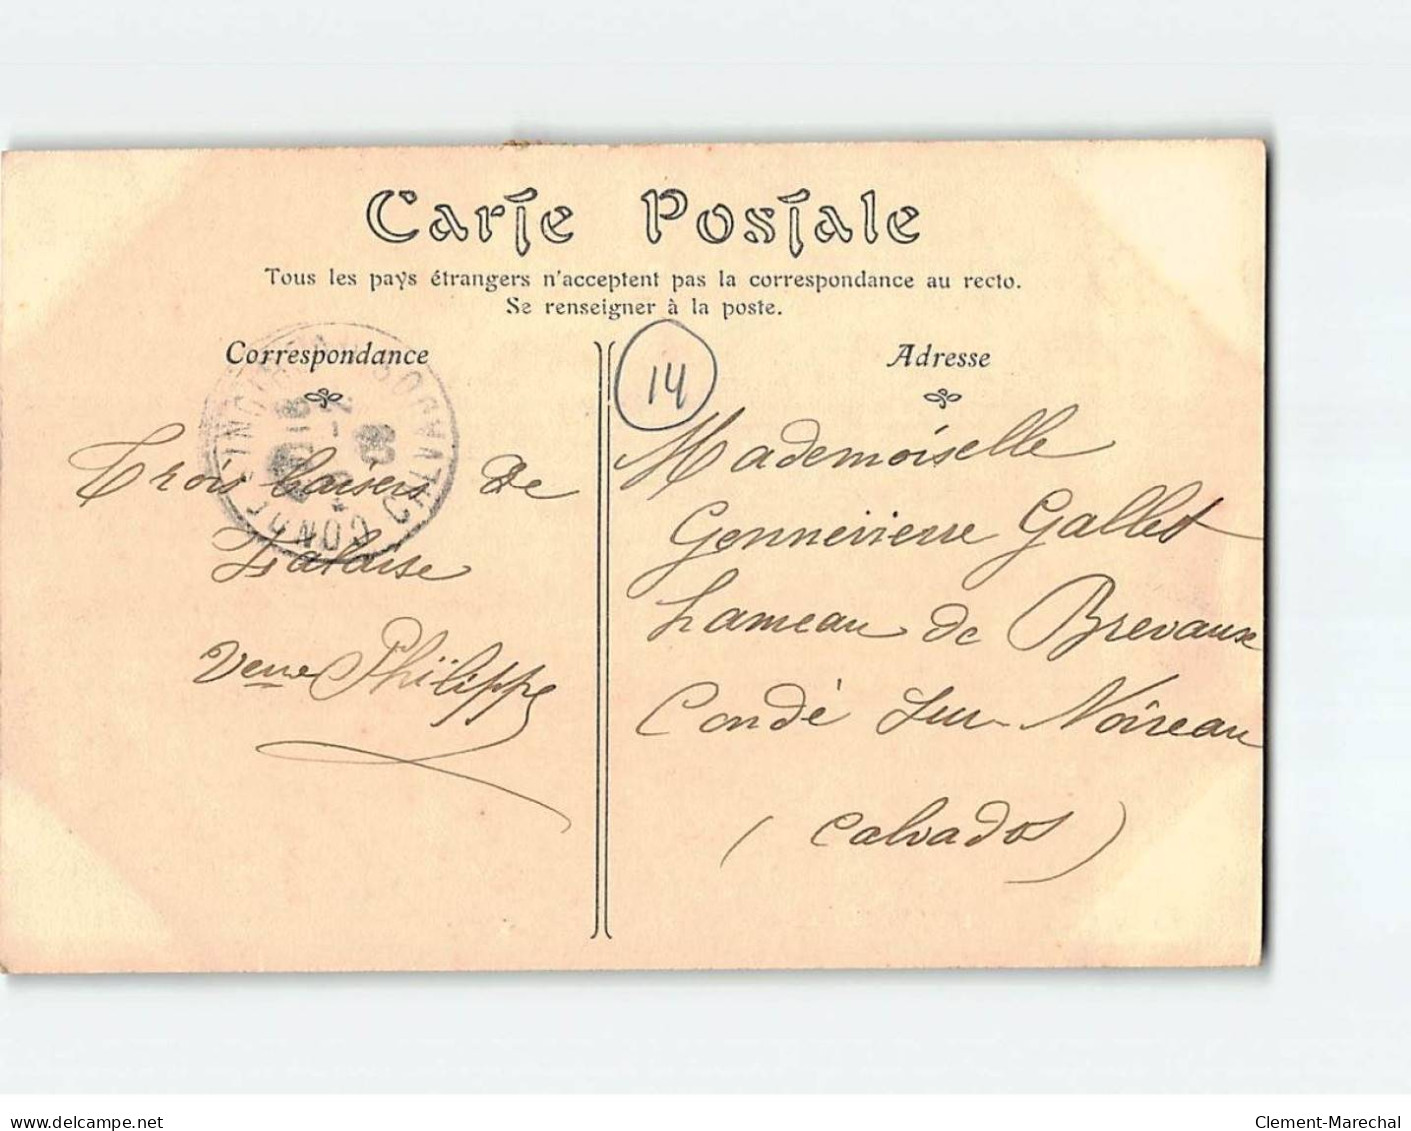 Carte Postale
Tous les pays étrangers n'acceptent pas la correspondance au recto.
Se renseigner à la poste.
Correspondance
Trois baisers de
Falaise
Veuve Philippe
14
Adresse
Mademoiselle
Gennevieve Gallet
hameau de Brevaux
Condé sur Noireau
(Calvados)
www.delcampe.net
Clement-Marechal